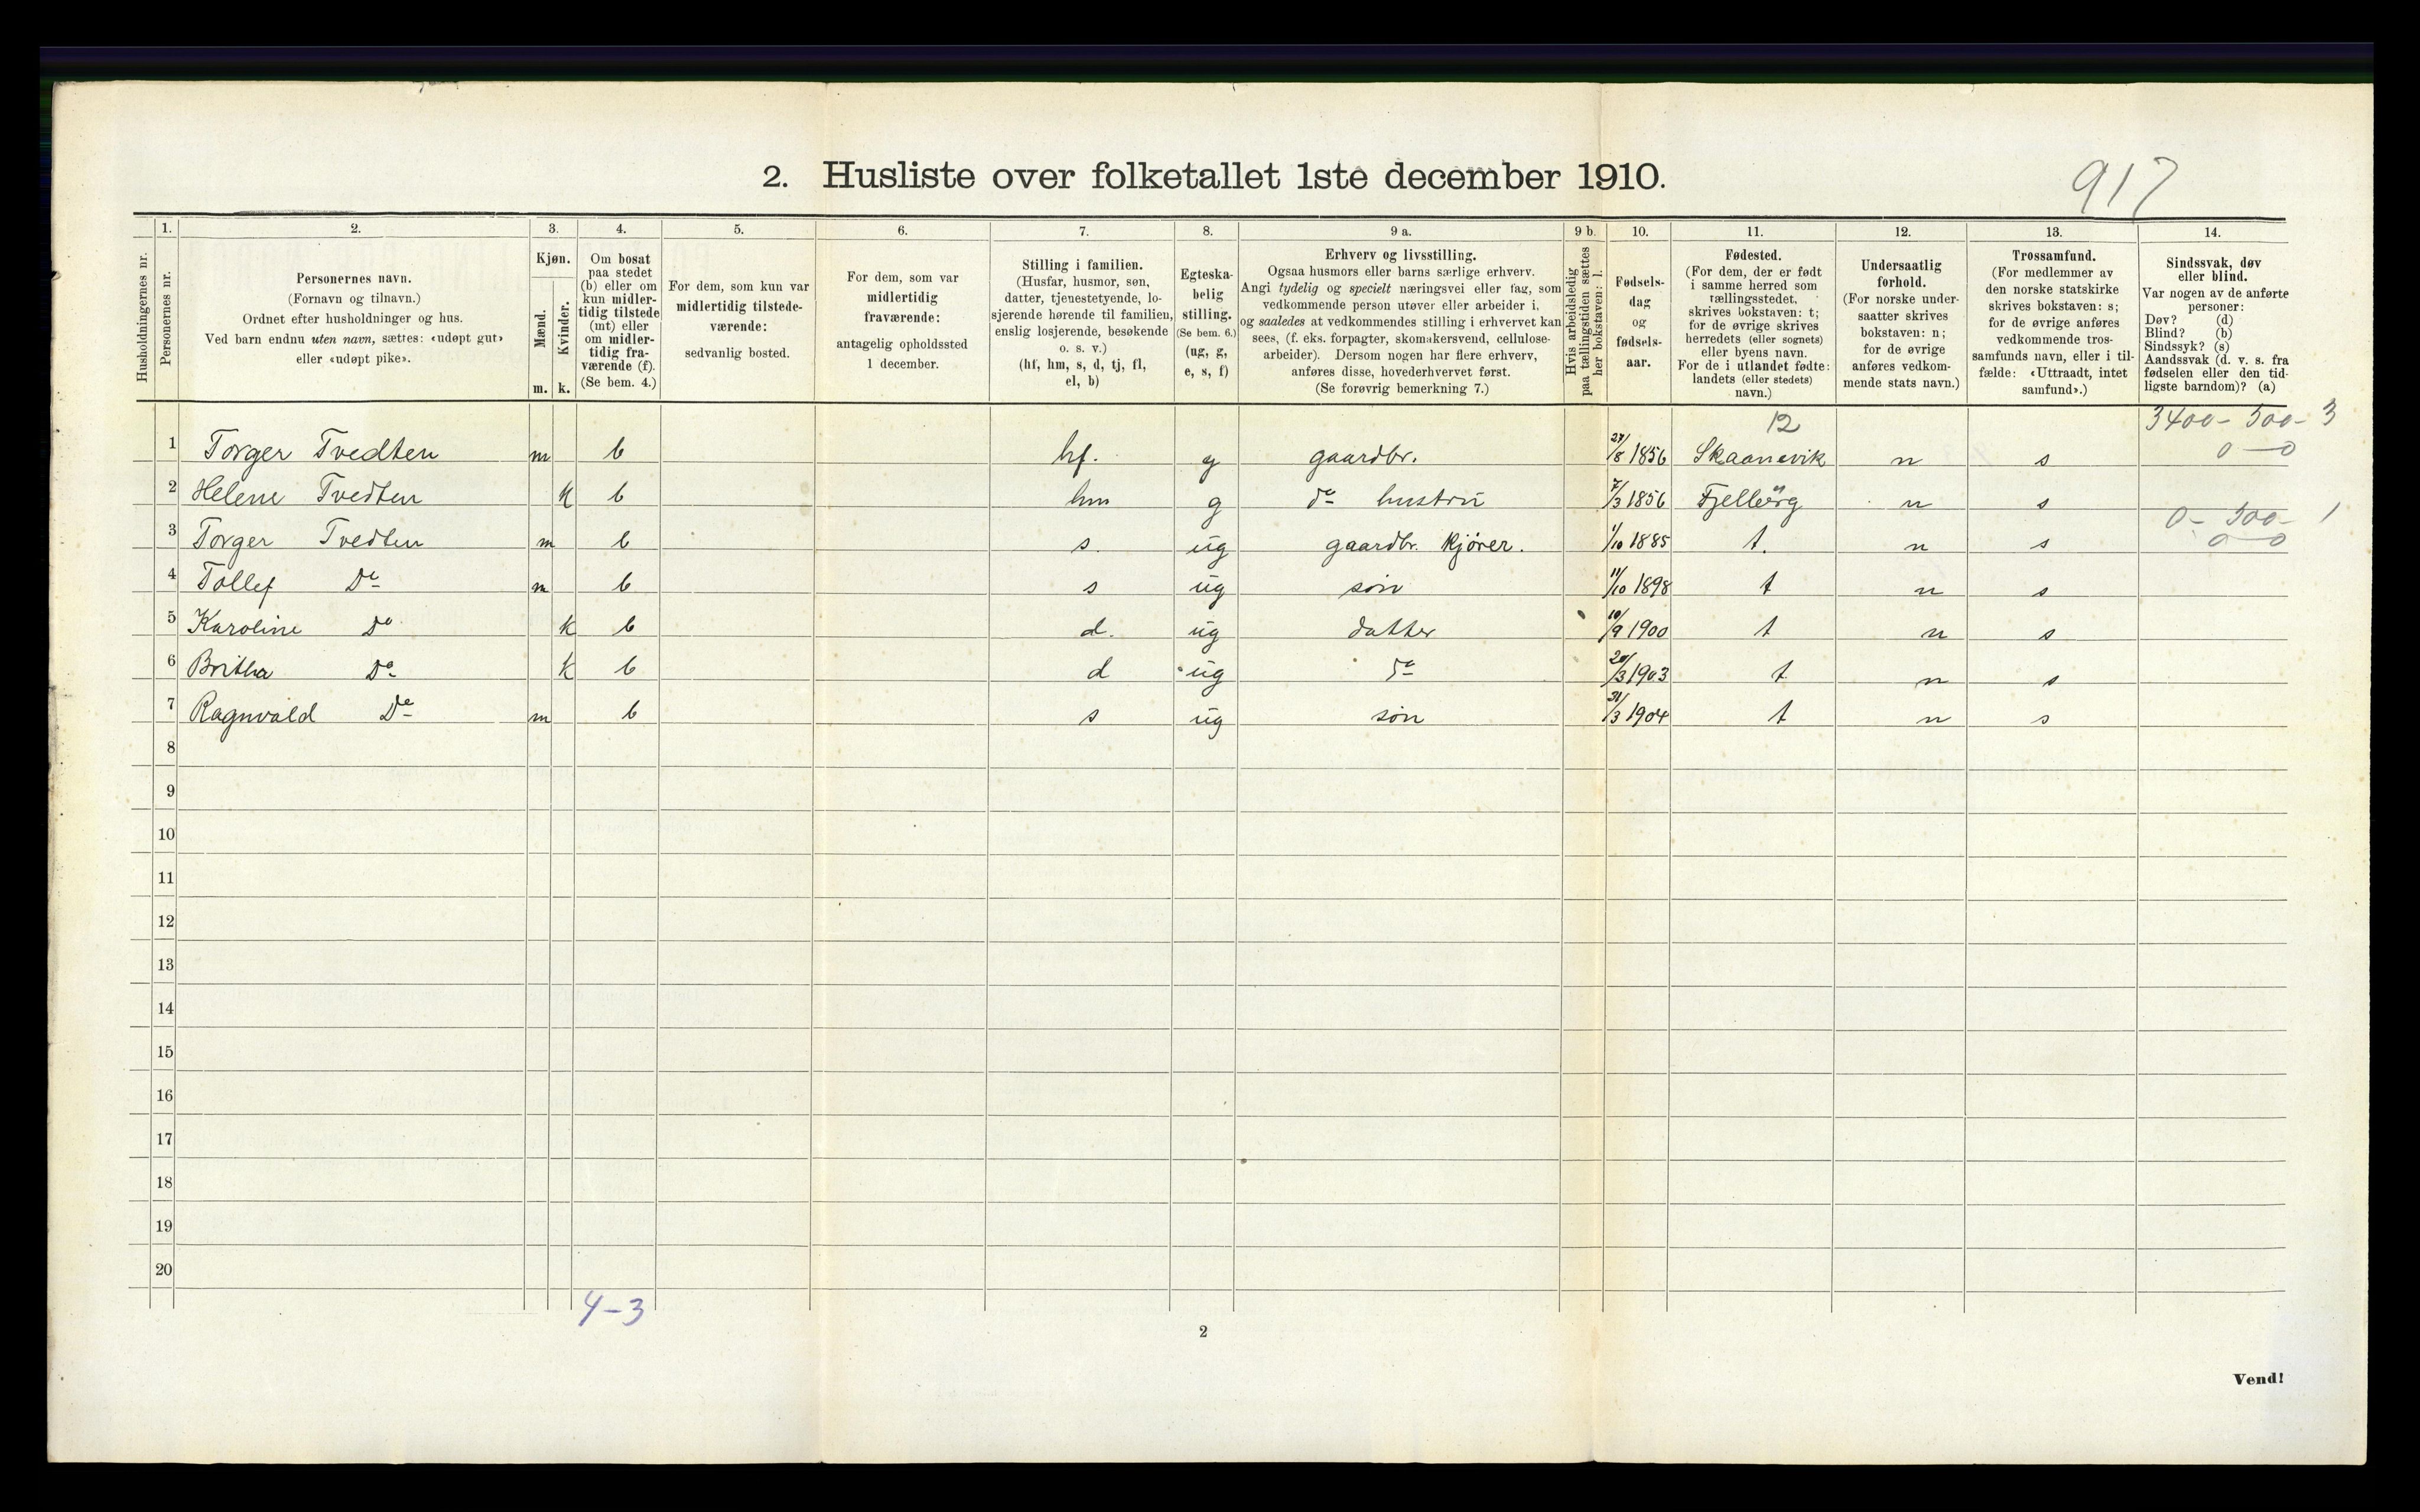 2. Husliste over folketallet 1ste december 1910.
917
1. 2. 3. 4. 5. 6. 7. 8. 9 a. 9 b. 10. 11. 12. 13. 14.
Husholdningernes nr.
Personernes nr.
Personernes navn.
(Fornavn og tilnavn.)
Ordnet efter husholdninger og hus.
Ved barn endnu uten navn, sættes: «udøpt gut»
eller «udøpt pike».
Kjøn.
Mænd.
Kvinder.
m. k.
Om bosat
paa stedet
(b) eller om
kun midler-
tidig tilstede
(mt) eller
om midler-
tidig fra-
værende (f).
(Se bem. 4.)
For dem, som kun var
midlertidig tilstede-
værende:
sedvanlig bosted.
For dem, som var
midlertidig
fraværende:
antagelig opholdssted
1 december.
Stilling i familien.
(Husfar, husmor, søn,
datter, tjenestetyende, lo-
sjerende hørende til familien,
enslig losjerende, besøkende
o. s. v.)
(hf, hm, s, d, tj, fl,
el, b)
Egteska-
belig
stilling.
(Se bem. 6.)
(ug, g,
e, s, f)
Erhverv og livsstilling.
Ogsaa husmors eller barns særlige erhverv.
Angi tydelig og specielt næringsvei eller fag, som
vedkommende person utøver eller arbeider i,
og saaledes at vedkommendes stilling i erhvervet kan
sees, (f. eks. forpagter, skomakersvend, cellulose-
arbeider). Dersom nogen har flere erhverv,
anføres disse, hovederhvervet først.
(Se forøvrig bemerkning 7.)
Hvis arbeidsledig
paa tællingstiden sættes
her bokstaven: l.
Fødsels-
dag
og
fødsels-
aar.
Fødested.
(For dem, der er født
i samme herred som
tællingsstedet,
skrives bokstaven: t;
for de øvrige skrives
herredets (eller sognets)
eller byens navn.
For de i utlandet fødte:
landets (eller stedets)
navn.)
Undersaatlig
forhold.
(For norske under-
saatter skrives
bokstaven: n;
for de øvrige
anføres vedkom-
mende stats navn.)
Trossamfund.
(For medlemmer av
den norske statskirke
skrives bokstaven: s;
for de øvrige anføres
vedkommende tros-
samfunds navn, eller i til-
fælde: «Uttraadt, intet
samfund».)
Sindssvak, døv
eller blind.
Var nogen av de anførte
personer:
Døv? (d)
Blind? (b)
Sindssyk? (s)
Aandssvak (d. v. s. fra
fødselen eller den tid-
ligste barndom)? (a)
12 3400 - 500 - 3
1 Torger Tvedten m b hf. g gaardbr. 27/8 1856 Skaanevik n s 0 - 0
2 Helene Tvedten k b hm g do hustru 7/3 1856 Fjelberg n s
0 - 500 - 1
3 Torger Tvedten m b s. ug gaardbr. kjører. 1/10 1885 t. n s 0 - 0
4 Tollef Do m b s ug søn 11/10 1898 t n s
5 Karoline Do k b d. ug datter 10/9 1900 t n s
6 Britha Do k b d ug do 20/3 1903 t n s
7 Ragnvald Do m b s ug søn 31/3 1904 t n s
8
9
10
11
12
13
14
15
16
17
18
19
20
4-3
2
Vend!